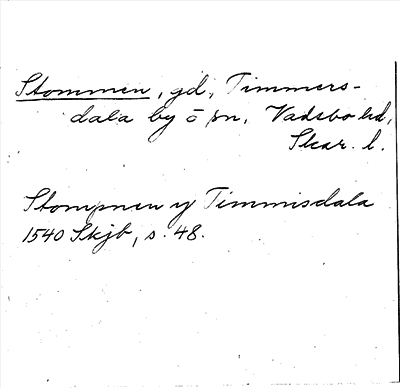 Stommen, gd, Timmers-
dala by ō sn, Vadsbo hd,
Skar. l.
Stompnen y Timmisdala
1540 Skjb, s. 48.